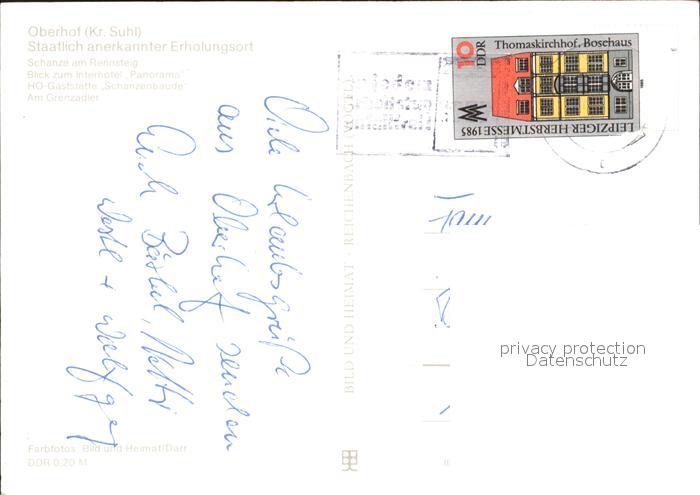 Oberhof (Kr. Suhl)
Staatlich anerkannter Erholungsort
Schanze am Rennsteig
Blick zum Interhotel „Panorama"
HO-Gaststätte „Schanzenbaude"
Am Grenzadler
10
DDR
Thomaskirchhof, Bosehaus
LEIPZIGER HERBSTMESSE 1985
Viele Urlaubsgrüße
aus Oberhof senden
Euch Bärbel,
+
BILD UND HEIMAT · REICHENBACH VOGTL
privacy protection
Datenschutz
Farbfotos: Bild und Heimat/Darr
DDR 0,20 M